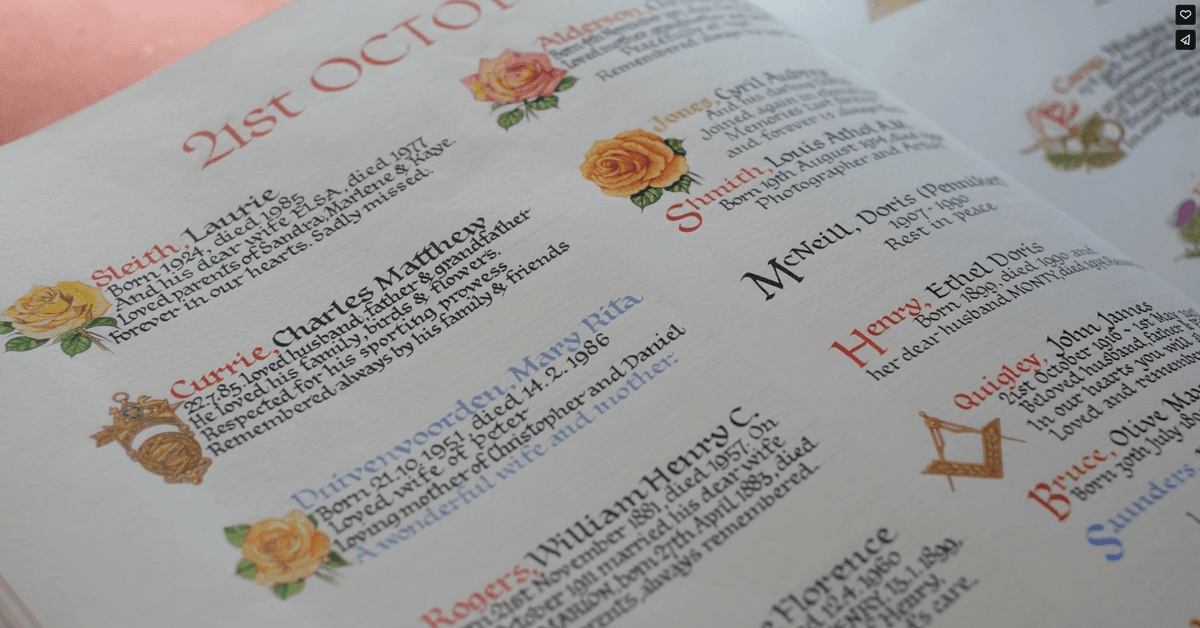 21ST OCTO
Sleith, Laurie
Born 1924, died 1985
And his dear wife ELSA, died 1977
Loved parents of Sandra, Marlene & Kaye.
Forever in our hearts. Sadly missed.
Currie, Charles Matthew
22.7.85 loved husband, father & grandfather
He loved his family, birds & flowers.
Respected for his sporting prowess
Remembered always by his family & friends
Duivenvoorden, Mary Rita
Born 21.10.1951, died 14.2.1986
Loved wife of Peter
Loving mother of Christopher and Daniel
A wonderful wife and mother.
Rogers, William Henry C.
21st November 1881, died 1957. On
October 1911 married his dear wife
MARION born 27th April 1883, died
parents, always remembered.
Alderson,
Remembered
Jones, Cyril
And his darling
Joined again
Memories last
and forever is
Shmith, Louis Athol
Born 19th August 1914, died
Photographer and
McNeill, Doris (Penniket
1907-1990
Rest in peace
Henry, Ethel Doris
Born 1899, died 1990 and
her dear husband, MONTY, died
Quigley, John James
21st October 1918 ~ 1st May
Beloved husband, father
In our hearts you will
Loved and remembered
Bruce, Olive
Born 30th July
Saunders,
Florence
12.4.1960
HENRY, 13.1.1899,
Henry,
care.